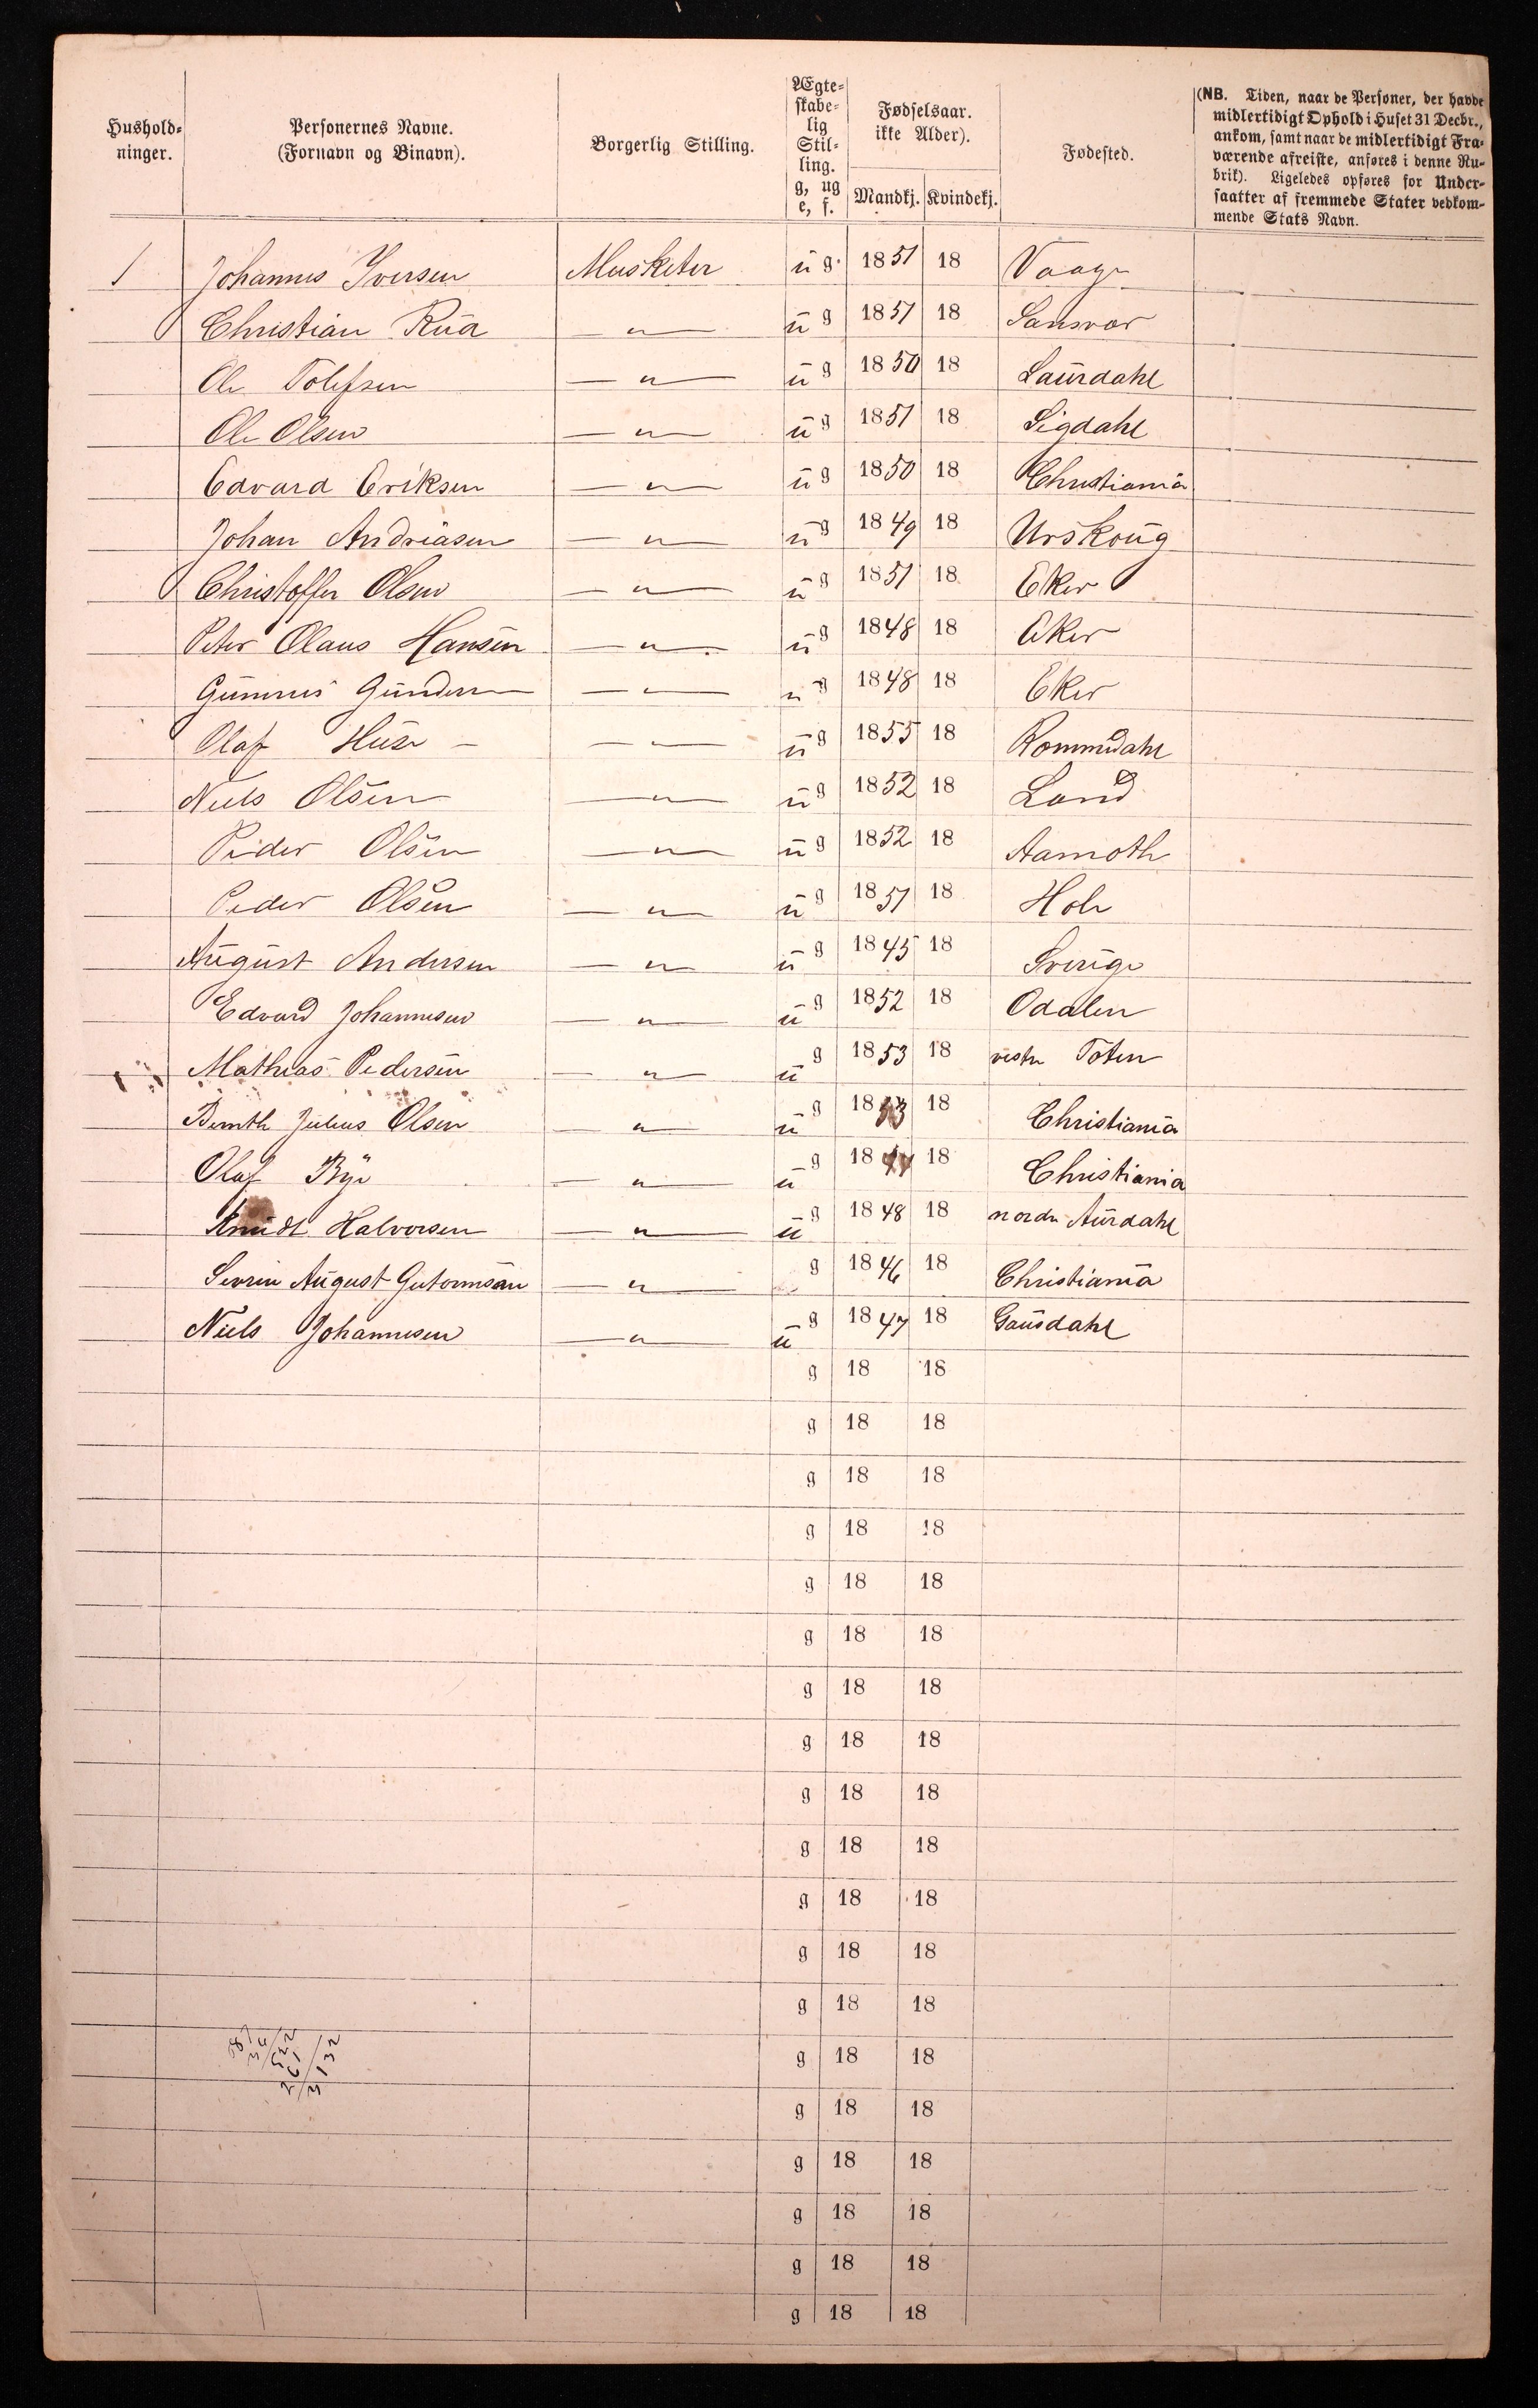 Hushold-
ninger.
Personernes Navne.
(Fornavn og Binavn).
Borgerlig Stilling.
Ægte-
skabe-
lig
Stil-
ling.
g, ug
e, f.
Fødselsaar.
ikke Alder).
Mandkj. Kvindekj.
Fødested.
(NB. Tiden, naar de Personer, der havde
midlertidigt Ophold i Huset 31 Decbr.,
ankom, samt naar de midlertidigt Fra-
værende afreiste, anføres i denne Ru-
brik). Ligeledes opføres for Under-
saatter af fremmede Stater vedkom-
mende Stats Navn.
1 Johannes Iversen Musketer ug. 1851 18 Vaage
Christian Rua — " — ug 1851 18 Sansvær
Ole Tolefsen — " — ug 1850 18 Laurdahl
Ole Olsen — " — ug 1851 18 Sigdahl
Edvard Eriksen — " — ug 1850 18 Christiania
Johan Andreasen — " — ug 1849 18 Urskoug
Christoffer Olsen — " — ug 1851 18 Eker
Peter Olaus Hansen — " — ug 1848 18 Eker
Gunnus Gundersen — " — ug 1848 18 Eker
Olaf Huse — " — ug 1855 18 Rommsdahl
Niels Olsen — " — ug 1852 18 Land
Peder Olsen — " — ug 1852 18 Aamoth
Peder Olsen — " — ug 1851 18 Hole
August Andersen — " — ug 1845 18 Sverige
Edvard Johannesen — " — ug 1852 18 Odalen
Mathias Pedersen — " — ug 1853 18 vestre Toten
Bernth Julius Olsen — " — ug 1853 18 Christiania
Olaf Bye — " — ug 18 18 Christiania
Knudt Halvorsen — " — ug 1848 18 nordre Aurdahl
Sevrin August Gutormsen — " — g 1846 18 Christiania
Niels Johannesen — " — ug 1847 18 Gausdahl
g 18 18
g 18 18
g 18 18
g 18 18
g 18 18
g 18 18
g 18 18
g 18 18
g 18 18
g 18 18
g 18 18
g 18 18
g 18 18
g 18 18
g 18 18
g 18 18
g 18 18
g 18 18
g 18 18